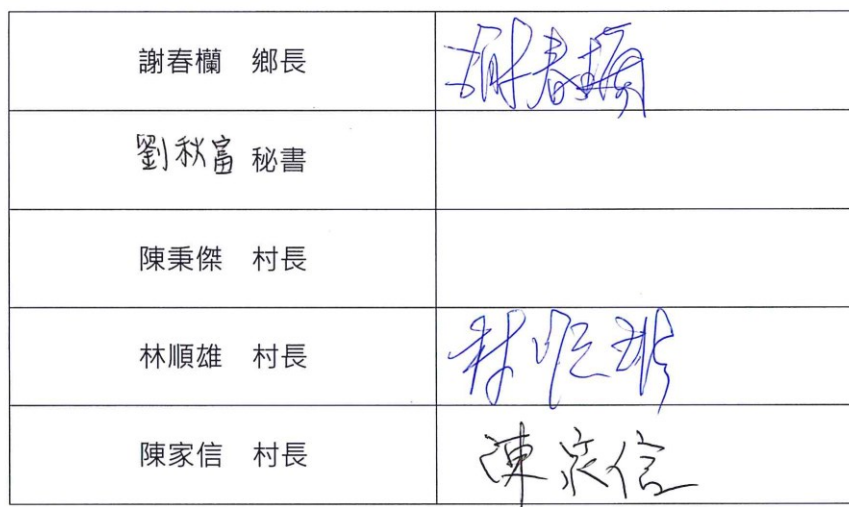 謝春欄 鄉長 謝春欄
劉秋富 秘書
陳秉傑 村長
林順雄 村長 林順雄
陳家信 村長 陳家信